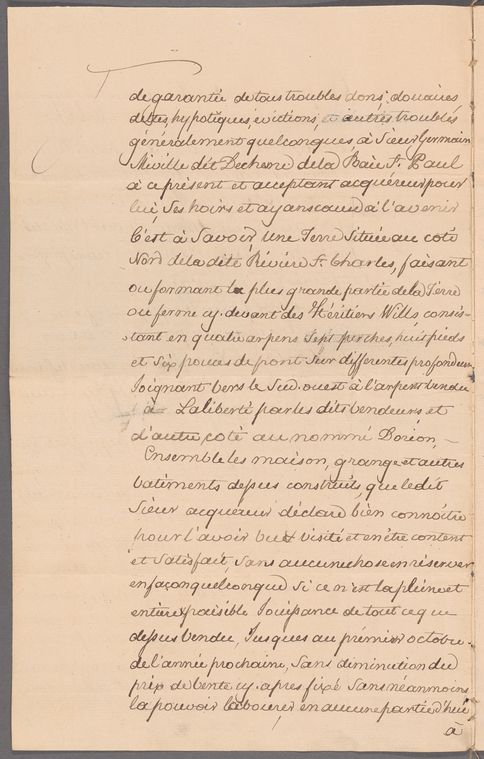 de garantie de tous troubles dons, douaires
dettes, hypotéques, évictions, et autres troubles
généralement quelconques, à Sieur Germain
Miville dit Dechene de la Baie St. Paul
à ce présent et acceptant acquéreur pour
lui, Ses hoirs et ayans cause à l'avenir
C'est à Savoir, Une Terre Située au coté
Nord de la dite Riviére St. Charles, faisant
ou formant la plus grande partie de la Terre
ou ferme cy-devant des Héritiers Wills consis-
tant en quatre arpens Sept perches, huit pieds
et Six pouces de front Sur differentes profondeurs
Joignant vers le Sud-ouest à l'arpent vendu
à Laliberté par les dits vendeurs, et
d'autre coté au nommé Dorion,
Ensemble les maison, grange et autres
batiments dessus construits, que le dit
Sieur acquéreur déclare bien connoître
pour l'avoir vu et visité et en être content
et Satisfait, Sans aucune chose en réserver
en façon quelconque Si ce n'est la pleine et
entiere & paisible Jouissance de tout ce que
dessus vendu, Jusques au prémier octobre
de l'année prochaine, Sans diminution du
prix de vente cy-apres fixé Sans néanmoins
la pouvoir labourer, en aucune partie d'hui
à